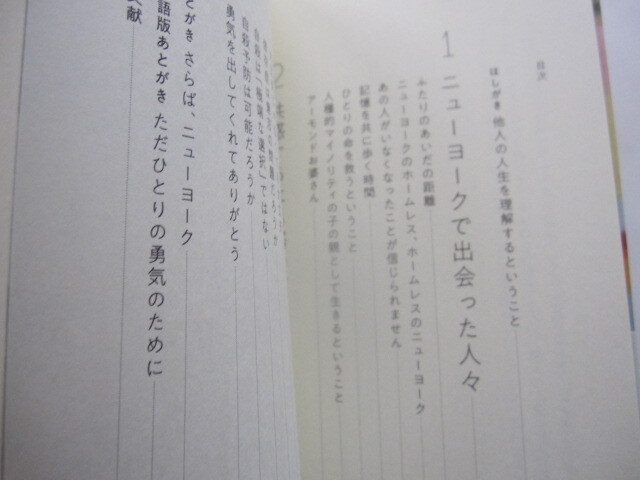 目次
はしがき 他人の人生を理解するということ
1 ニューヨークで出会った人々
ふたりのあいだの距離
ニューヨークのホームレス、ホームレスのニューヨーク
あの人がいなくなったことが信じられません
記憶を共に歩く時間
ひとりの命を救うということ
人種的マイノリティの子の親として生きるということ
アーモンドお婆さん
2
自殺は「極端な選択」ではない
自殺予防は可能だろうか
勇気を出してくれてありがとう
とがき さらば、ニューヨーク
語版あとがき ただひとりの勇気のために
文献